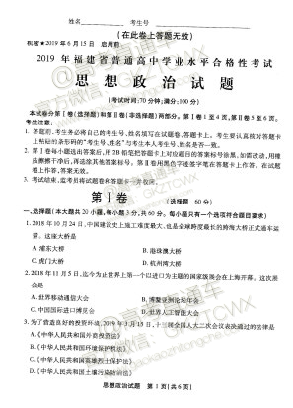 姓名 考生号
(在此卷上答题无效)
机密★2019年6月15日 启用前
2019年福建省普通高中学业水平合格性考试
思想政治试题
(考试时间:70分钟;满分:100分)
本试卷分第Ⅰ卷(选择题)和第Ⅱ卷(非选择题)两部分。第Ⅰ卷1至4页,第Ⅱ卷5至6页。
考生注意:
1. 答题前,考生务必将自己的考生号、姓名填写在试题卷、答题卡上。考生要认真核对答题卡
上粘贴的条形码的“考生号、姓名”与考生本人考生号、姓名是否一致。
2. 第Ⅰ卷每小题选出答案后,用2B铅笔把答题卡上对应题目的答案标号涂黑,如需改动,用橡
皮擦擦干净后,再选涂其他答案标号。第Ⅱ卷用黑色字迹签字笔在答题卡上作答。在试题
卷上作答,答案无效。
3. 考试结束,监考员将试题卷和答题卡一并收回。
第Ⅰ卷
(选择题 60分)
一、选择题(本大题共20小题,每小题3分,共60分。每小题只有一个选项符合题目要求)
1. 2018年10月24日,中国建设史上施工难度最大、也是全球跨度最长的跨海大桥正式通车运
营。这座大桥是
A. 浦东大桥 B. 港珠澳大桥
C. 虎门大桥 D. 杭州湾大桥
2. 2018年11月5日,迄今为止世界上第一个以进口为主题的国家级展会在上海开幕。这次展
会是
A. 世界移动通信大会 B. 博鳌亚洲论坛年会
C. 中国国际进口博览会 D. 世界互联网大会
3. 为了营造良好的投资环境,2019年3月15日,十三届全国人大二次会议表决通过的法律是
A.《中华人民共和国外商投资法》
B.《中华人民共和国英雄烈士保护法》
C.《中华人民共和国电子商务法》
D.《中华人民共和国土壤污染防治法》
思想政治试题 第1页(共6页)